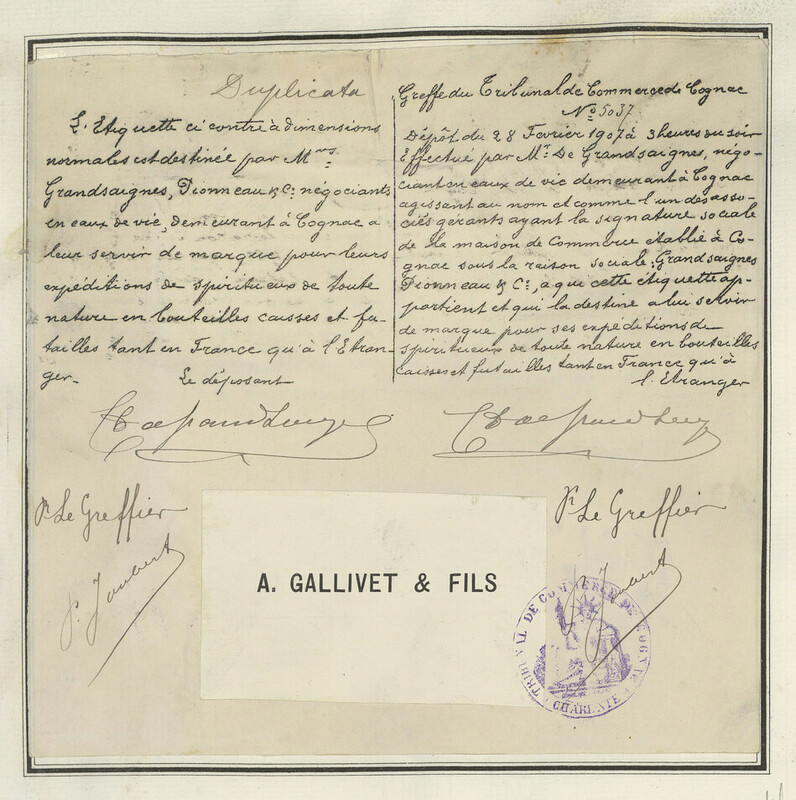 Duplicata
L'Etiquette ci contre à dimensions
normales est destinée par Mrs
Grandsaignes, Dionneau & Cie négociants
en eaux de vie, demeurant à Cognac a
leur servir de marque pour leurs
expéditions de spiritueux de toute
nature en bouteilles caisses et fu-
tailles tant en France qu'à l'Etran-
ger.
Le déposant
Greffe du Tribunal de Commerce de Cognac
No 5037
Dépôt du 28 Février 1907 à 3 heures du soir
Effectué par Mr. De Grandsaignes, négo-
ciant en eaux de vie demeurant à Cognac
agissant au nom et comme l'un des asso-
ciés gérants ayant la signature sociale
de la maison de Commerce établie à Co-
gnac sous la raison sociale: Grandsaignes
Dionneau & Cie, a qui cette étiquette ap-
partient et qui la destine a lui servir
de marque pour ses expéditions de
spiritueux de toute nature en bouteilles
caisses et futailles tant en France qu'à
l'Etranger
Pr Le Greffier
P. Joubert
Pr Le Greffier
A. GALLIVET & FILS
TRIBUNAL DE COMMERCE DE COGNAC
CHARENTE